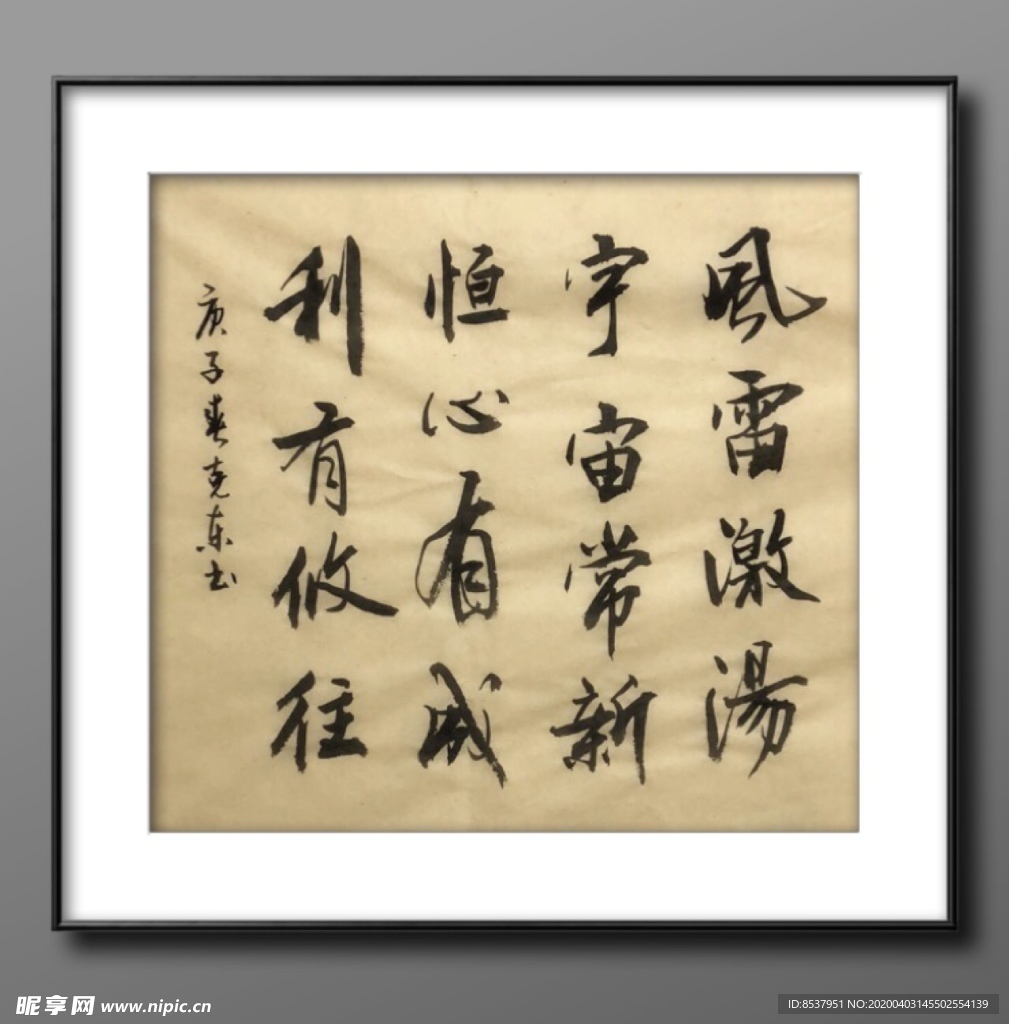 風雷激湯
宇宙常新
恒心有成
利有攸往
庚子春克东书
昵享网 www.nipic.cn
ID:8537951 NO:20200403145502554139